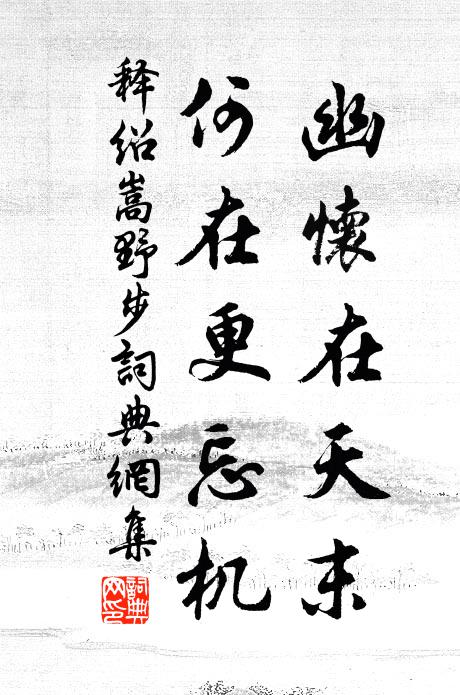 幽懷在天末
何在更忘机
释绍嵩野步詞典網集
詞典网印